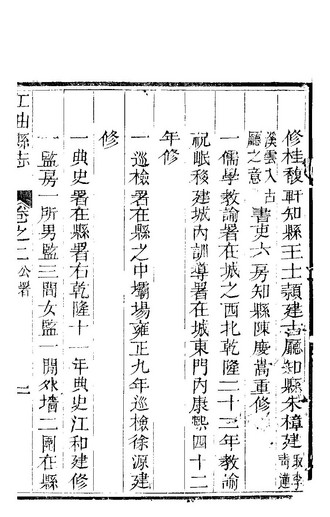 修桂馥軒知縣王士顥建古廳知縣朱樟建取李青蓮
溪雲入古廳之意書吏六房知縣陳慶嵩重修
一儒學教諭署在城之西北乾隆二十三年教諭
祝岷移建城內訓導署在城東門內康熙四十二
年修
一巡檢署在縣之中壩場雍正九年巡檢徐源建
修
一典史署在縣署右乾隆十一年典史江和建修
一監房一所男監三間女監一間外墻二圍在縣
江由縣志
卷之二公署
二